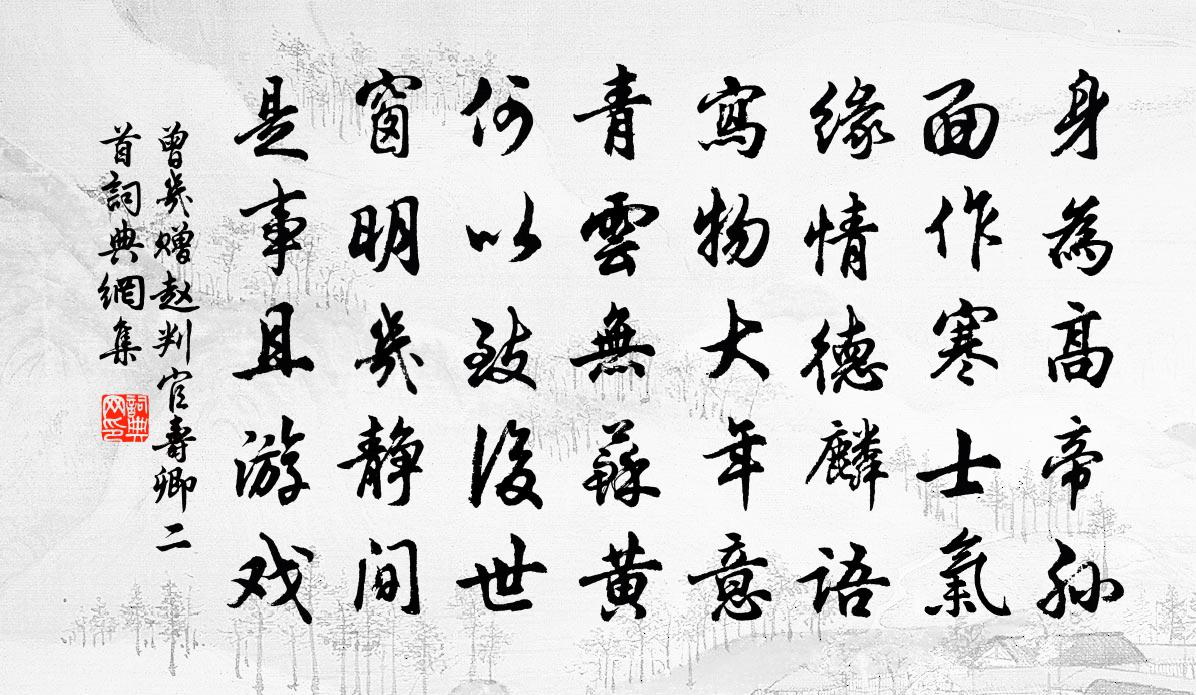 身為高帝孫
面作寒士氣
緣情德麟語
寫物大年意
青雲無蘇黄
何以致後世
窗明幾静间
是事且游戏
曾幾赠赵判官壽卿二
首詞典網集
詞典网印